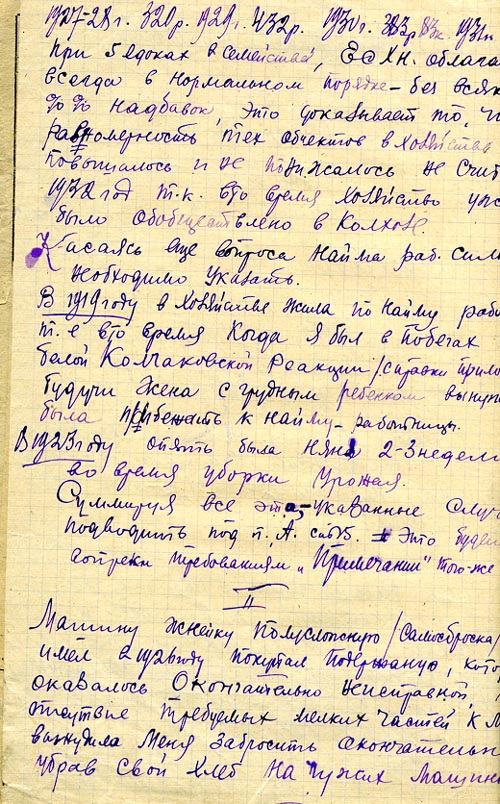 1927-28г. 320р. 1929г. 432р. 1930г. 383р 83к. 1931г.
при 5 едоках в семействе, ЕСХН. облага
всегда в нормальном порядке – без всяк
%% надбавок, это доказывает то, ч
равномерность тех объектов в хозяйстве
повышалось и не понижалось не счит
1932 год т.к. в то время хозяйство уж
было обобществлено в колхозе.
Касаясь еще вопроса найма раб. силы
необходимо указать.
В 1919 году в хозяйстве жила по найму рабо
т.е в то время когда я был в побегах
белой Колчаковской Реакции /справки прило
будучи жена с грудным ребенком вынуж
была прибежать к найму – работницы.
В 1923 году опять была няня 2-3 недели
во время уборки урожая.
Суммируя все эти, указанные случ
подводить под п. А. ст 15. – это буде
вопреки требованиям "Примечании" того-же
II
Машину жнейку полусложную /самосброска/
имел в 1926 году покупал подержаную, кото
оказалось окончательно неисправной,
тсутствие требуемых мелких частей к м
вынудила меня забросить окончательно
убрав свой хлеб на чужих машин